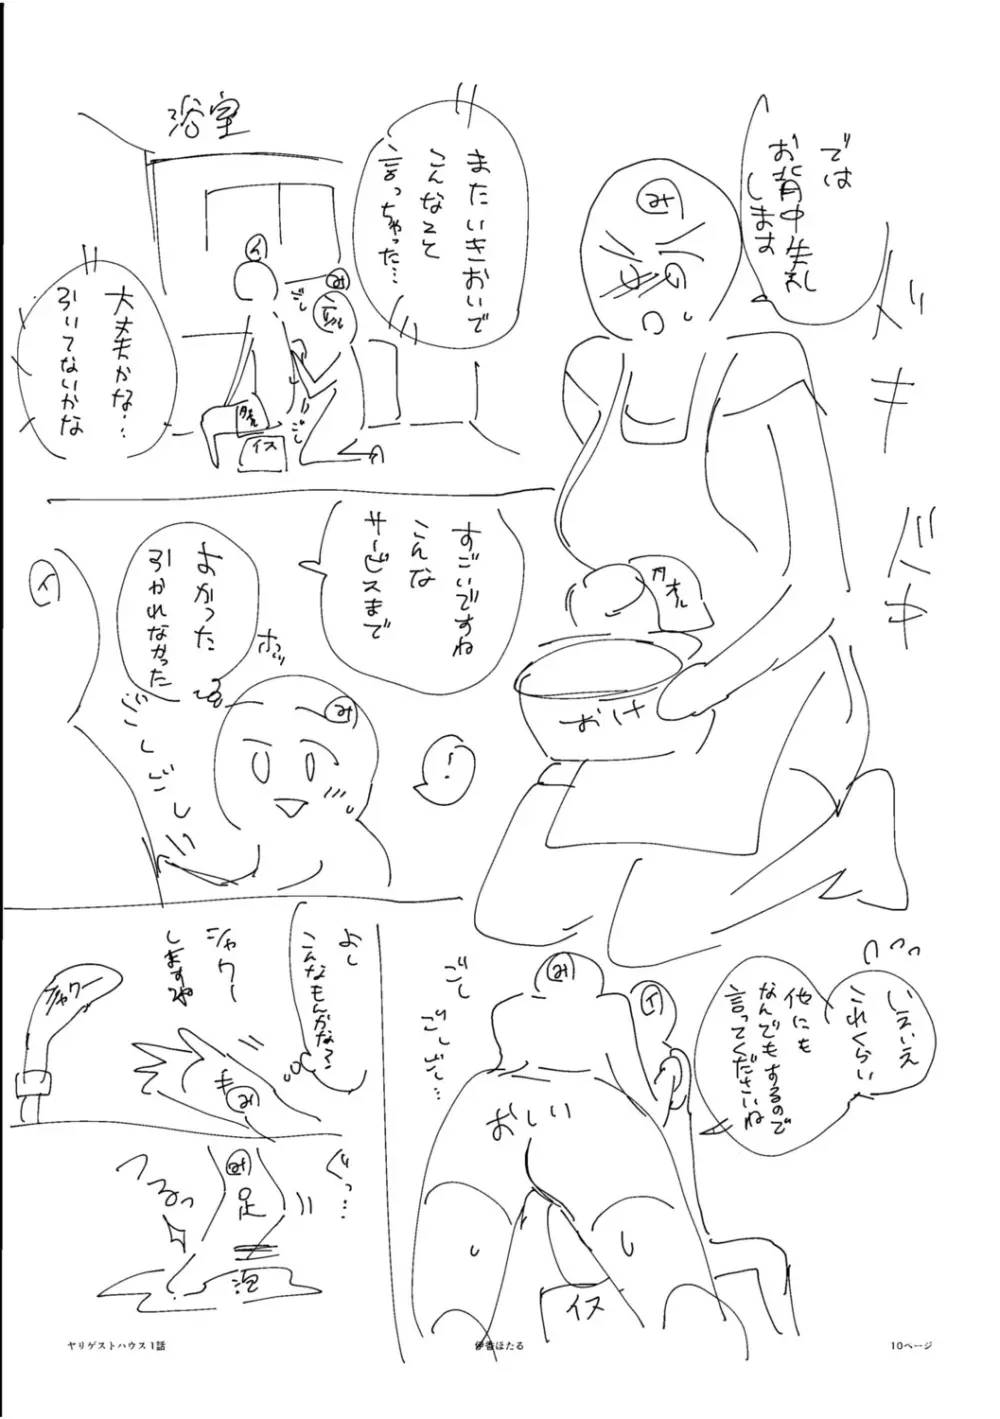 では
お背中失礼
します
ドキ
ドキ
み
タオル
おけ
浴室
またいきおいで
こんなこと
言っちゃった…
大丈夫かな…
引いてないかな
イ
み
ごし
ごし
イス
すごいですね
こんな
サービスまで
よかった
引かれなかった
ホッ
み
イ
ごしごし
!
いえいえ
これくらい
他にも
なんでもするので
言ってくださいね
み
イ
ごし
ごしごし…
おしり
イス
よし
こんなもんかな?
シャワー
しますね
シャワー
手
み
ぐっ…
み
足
泡
つるっ
ヤリゲストハウス1話
伊香ほたる
10ページ